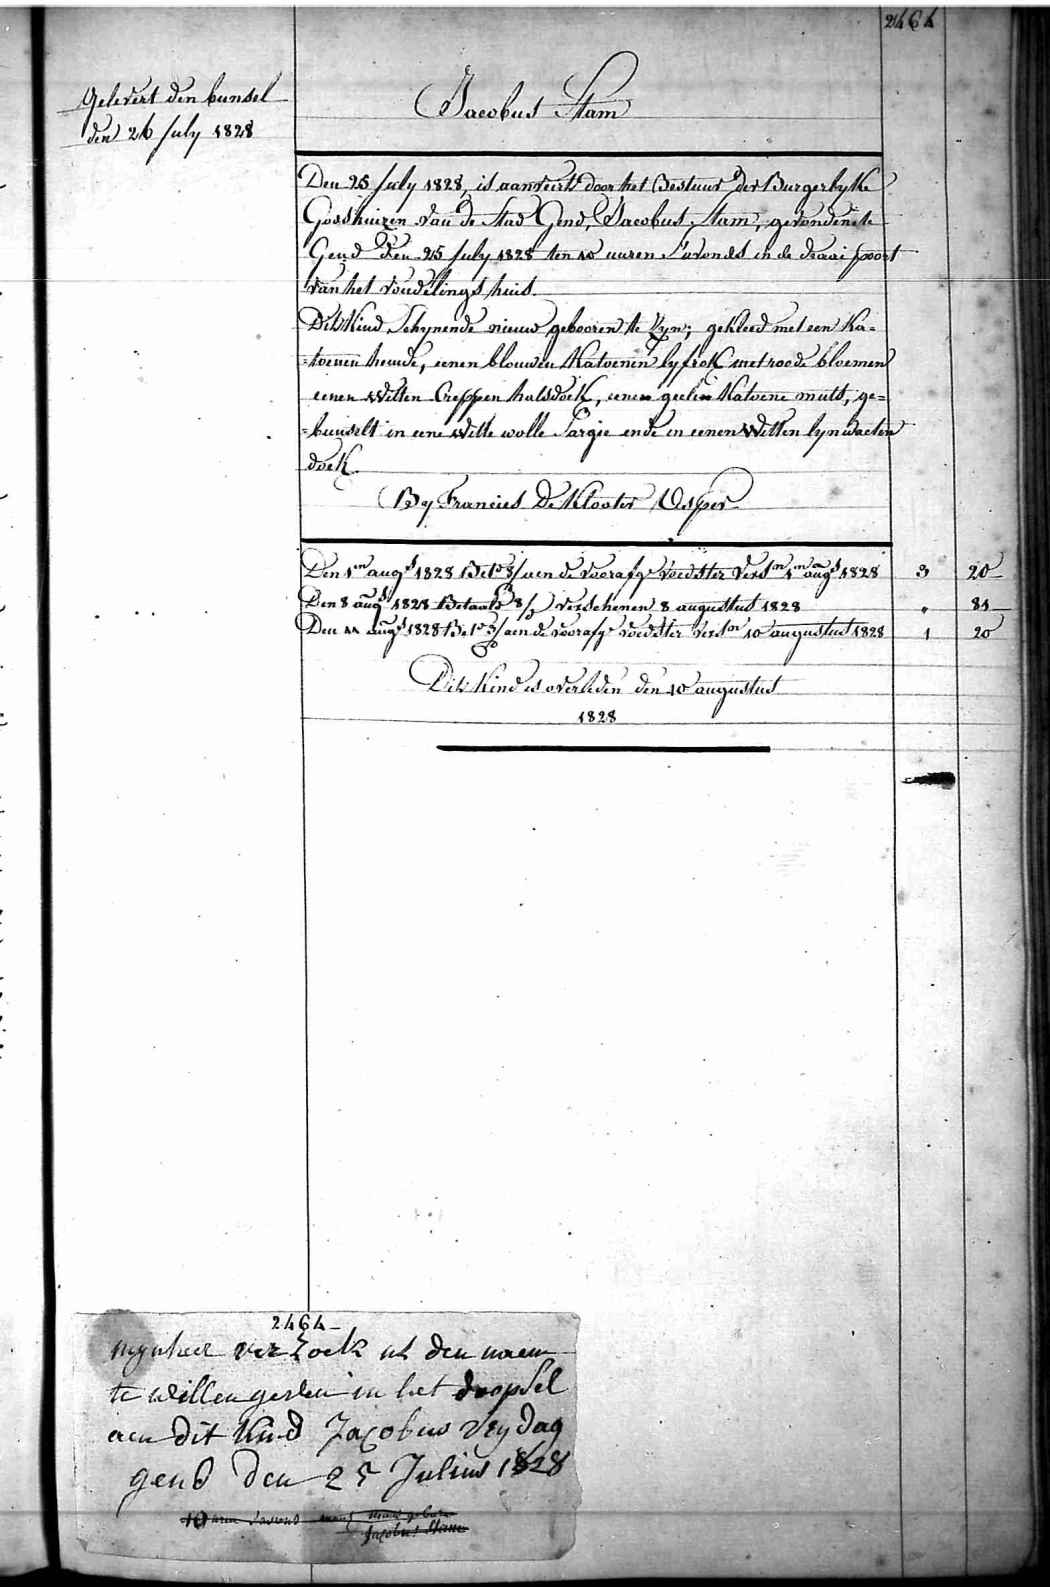 2464
Gelevert den bunsel
den 26 July 1828
Jacobus Stam
Den 25 July 1828, is aanveert door het Bestuur der Burgerlyke
Godshuizen van de Stad Gend, Jacobus Stam, gevonden te
Gend den 25 July 1828 ten 10 uuren s'avonds in de draai poort
van het vondelings huis.
Dit Kind Schynende nieuw gebooren te Zyn; gekleed met een Ka=
=toenen hemde, eenen blouwen Katoenen lyfrok met roode bloemen
eenen Witten Creppen halsdoek, eenen geelen Katoene muts, ge=
=bunselt in eene Witte wolle Sargie ende in eenen Witten lynwaeten
doek.
By Francies De Klooter
Den 1en augs 1828 Bet° 3/ aen de voorafge Voedster versn 1en augs 1828 3 20
Den 8 augs 1828 Betaald 8/ verschenen 8 augustus 1828 " 81
Den 11 augs 1828 Bet° 3/ aen de voorafge voedster versn 10 augustus 1828 1 20
Dit Kind is overleden den 10 augustus
1828
2464
mynheer verzoek ul den naem
te willen geven in het doopsel
aen dit Kind Jacobus Vrydag
gend den 25 Julius 1828
10 uren s'avons
Jacobus Stam